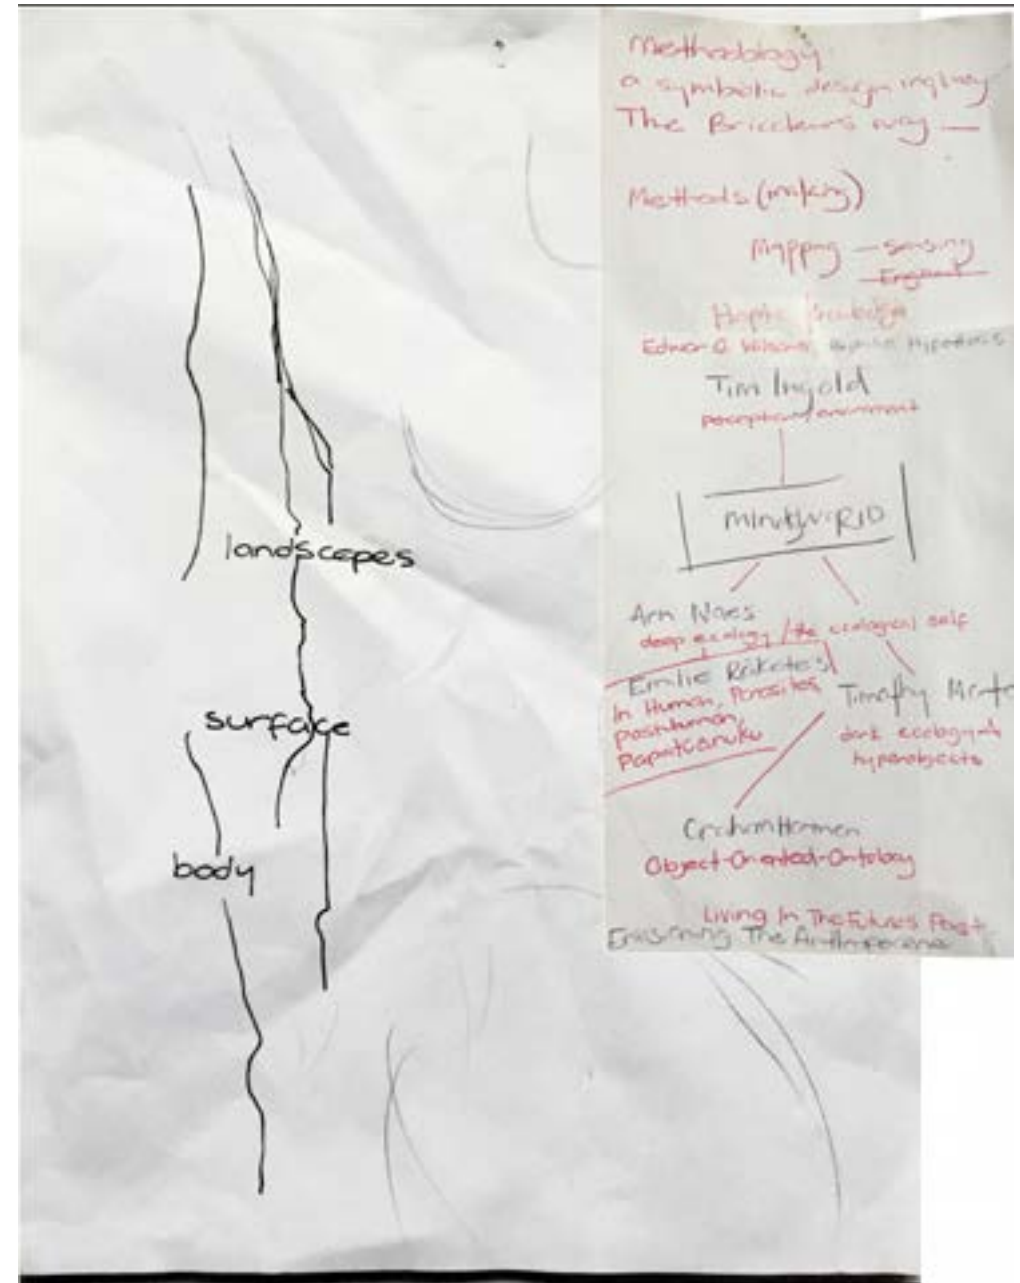 landscapes
surface
body
Methodology
a symbolic design inquiry
The Bricoleurs way —
Methods (making)
Mapping — sensing
Haptic knowledge
Tim Ingold
perception/environment
Arn Naes
deep ecology / the ecological self
Emilie Rākete
In Human, Parasites,
Posthuman,
Papatūānuku
Timothy
dark ecology
hyperobjects
Graham Harman
Object-Oriented-Ontology
Living In The Futures Past
The Anthropocene